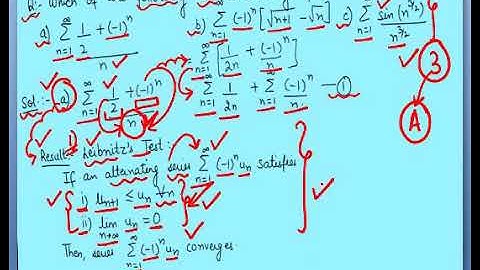 Q:- Which of the
a) ∞ Σ n=1 1/2 + (-1)^n / n b) ∞ Σ n=1 (-1)^n [√n+1 - √n] c) ∞ Σ n=1 sin(n^3/2) / n^3/2
Sol:- a) ∞ Σ n=1 1/2 + (-1)^n / n = ∞ Σ n=1 [1/2n + (-1)^n / n] 3
= ∞ Σ n=1 1/2n + ∞ Σ n=1 (-1)^n / n — ① A
Result: Leibnitz's Test:
If an alternating series ∞ Σ n=1 (-1)^n un satisfies
i) un+1 ≤ un ∀n
ii) lim n→∞ un = 0
Then, series ∞ Σ n=1 (-1)^n un converges.